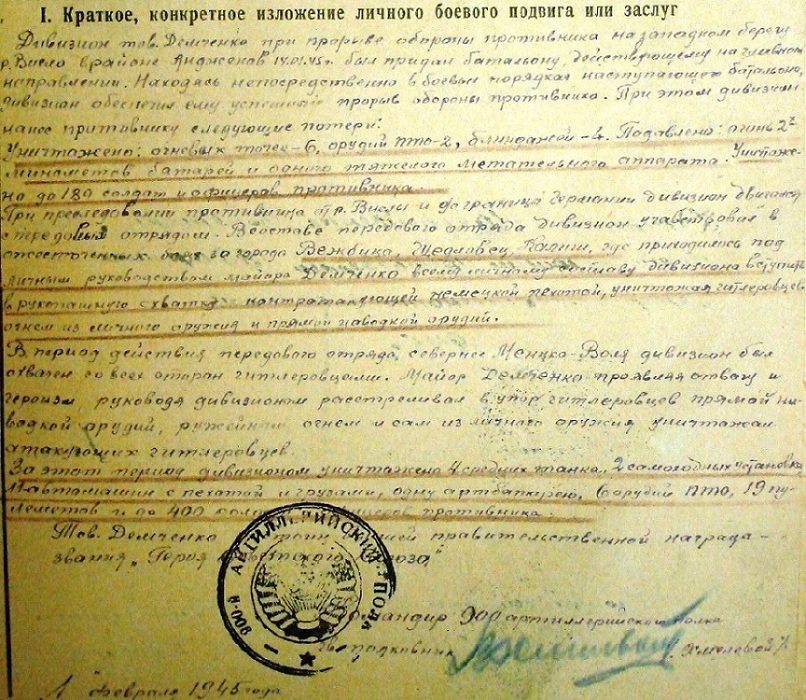 I. Краткое, конкретное изложение личного боевого подвига или заслуг
Дивизион тов. Демченко при прорыве обороны противника на западном берегу
р. Висла в районе 14.01.45г. был придан батальону, действующему на главном
направлении. Находясь непосредственно в боевых порядках наступающего батальона,
дивизион обеспечил ему успешный прорыв обороны противника. При этом дивизион
нанес противнику следующие потери:
Уничтожено: огневых точек-6, орудий ПТО-2, блиндажей-4. Подавлено: огонь 2х
минометных батарей и одного тяжелого метательного аппарата. Уничтоже-
но до 180 солдат и офицеров противника.
При преследовании противника от р. Вислы и до границ Германии дивизион двигался
с передовым отрядом. В составе передового отряда дивизион участвовал в
ожесточенных боях за города Вежбица, Шедловец, Калиш, где приходилось под
личным руководством майора Демченко всему личному составу дивизиона вступать
в рукопашную схватку с контратакующей немецкой пехотой, уничтожая гитлеровцев
огнем из личного оружия и прямой наводкой орудий.
В период действия передового отряда, севернее Менцка-Воля дивизион был
охвачен со всех сторон гитлеровцами. Майор Демченко проявляя отвагу и
героизм руководя дивизионом расстреливал в упор гитлеровцев прямой на-
водкой орудий, ружейным огнем и сам из личного оружия уничтожал
атакующих гитлеровцев.
За этот период дивизионом уничтожено 4 средних танка, 2 самоходных установки,
автомашин с пехотой и грузами, одну артбатарею, 6 орудий ПТО, 19 пу-
леметов и до 400 солдат и офицеров противника.
Тов. Демченко достоин высшей правительственной награды -
звания "Героя Советского Союза"
900-й АРТИЛЛЕРИЙСКИЙ ПОЛК
Командир 900 артиллерийского полка
подполковник /Хмелевой/
1 февраля 1945 года